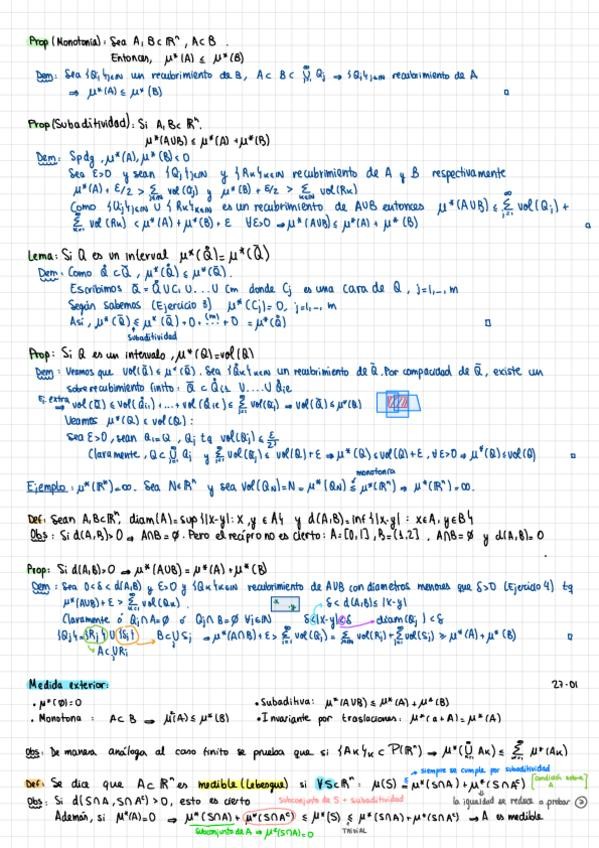 Prop (Monotonía): Sea A, B⊂ℝⁿ, A⊂B.
Entonces, μ*(A) ≤ μ*(B)
Dem: Sea {Qⱼ}ⱼ∈ℕ un recubrimiento de B, A⊂B⊂ ∪ Qⱼ → {Qⱼ}ⱼ∈ℕ recubrimiento de A
⇒ μ*(A) ≤ μ*(B) □
Prop (Subaditividad): Si A, B⊂ℝⁿ.
μ*(A∪B) ≤ μ*(A) + μ*(B)
Dem: Spdg, μ*(A), μ*(B) < 0
Sea ε>0 y sean {Qⱼ}ⱼ∈ℕ y {Rₖ}ₖ∈ℕ recubrimiento de A y B respectivamente
μ*(A) + ε/2 > Σ vol(Qⱼ) y μ*(B) + ε/2 > Σ vol(Rₖ)
Como {Qⱼ}ⱼ∈ℕ ∪ {Rₖ}ₖ∈ℕ es un recubrimiento de A∪B entonces μ*(A∪B) ≤ Σ vol(Qⱼ) +
Σ vol(Rₖ) < μ*(A) + μ*(B) + ε ∀ε>0 ⇒ μ*(A∪B) ≤ μ*(A) + μ*(B) □
Lema: Si Q es un interval μ*(Q̊) = μ*(Q̄)
Dem: Como Q̊⊂Q̄, μ*(Q̊) ≤ μ*(Q̄).
Escribimos Q̄ = Q̊ ∪ C₁ ∪ ... ∪ Cm donde Cⱼ es una cara de Q, j=1,..., m
Según sabemos (Ejercicio 3) μ*(Cⱼ) = 0, j=1,..., m
Así, μ*(Q̄) ≤ μ*(Q̊) + 0 + (m) + 0 = μ*(Q̊) □
subaditividad
Prop: Si Q es un intervalo, μ*(Q) = vol(Q)
Dem: Veamos que vol(Q̄) ≤ μ*(Q̄). Sea {Q̊ₖ}ₖ∈ℕ un recubrimiento de Q̄. Por compacidad de Q̄, existe un
sobrerecubimiento finito: Q̄ ⊂ Q̊i₁ ∪ ... ∪ Q̊iₑ
Ej. extra ⇒ vol(Q̄) ≤ vol(Q̊i₁) + ... + vol(Q̊iₑ) ≤ Σ vol(Qⱼ) ⇒ vol(Q̄) ≤ μ*(Q̄)
Veamos μ*(Q) ≤ vol(Q):
Sea ε>0, sean Q₁=Q, Qⱼ tq vol(Qⱼ) ≤ ε/2ʲ
Claramente, Q⊂ ∪ Qⱼ y Σ vol(Qⱼ) ≤ vol(Q) + ε ⇒ μ*(Q) ≤ vol(Q) + ε, ∀ε>0 ⇒ μ*(Q) ≤ vol(Q) □
monotonía
Ejemplo: μ*(ℝⁿ) = ∞. Sea N∈ℝⁿ y sea vol(QN) = N = μ*(QN) ≤ μ*(ℝⁿ) ⇒ μ*(ℝⁿ) = ∞.
Def: Sean A, B⊂ℝⁿ, diam(A) = sup{|x-y| : x, y ∈ A} y d(A,B) = inf{|x-y| : x∈A, y∈B}
Obs: Si d(A,B)>0 ⇒ A∩B = ∅. Pero el recíproco no es cierto: A=[0,1], B=(1,2], A∩B=∅ y d(A,B)=0
Prop: Si d(A,B)>0 ⇒ μ*(A∪B) = μ*(A) + μ*(B)
Dem: Sea 0<δ<d(A,B) y ε>0 y {Qₖ}ₖ∈ℕ recubrimiento de A∪B con diametros menores que δ>0 (Ejercicio 4) tq
μ*(A∪B) + ε > Σ vol(Qₖ). δ<d(A,B) ≤ |x-y|
Claramente ó Qⱼ∩A=∅ ó Qⱼ∩B=∅ ∀j∈ℕ δ<|x-y|≤δ diam(Qⱼ)<δ
{Qⱼ} = {Rⱼ} ∪ {Sⱼ} B⊂∪Sⱼ ⇒ μ*(A∩B) + ε > Σ vol(Qⱼ) = Σ vol(Rⱼ) + Σ vol(Sⱼ) ≥ μ*(A) + μ*(B) □
A⊂∪Rⱼ
Medida exterior: 27-01
• μ*(∅)=0 • Subaditiva: μ*(A∪B) ≤ μ*(A) + μ*(B)
• Monotona: A⊂B ⇒ μ*(A) ≤ μ*(B) • Invariante por traslaciones: μ*(a+A) = μ*(A)
Obs: De manera análoga al caso finito se prueba que si {Aₖ}ₖ⊂P(ℝⁿ) ⇒ μ*(∪ Aₖ) ≤ Σ μ*(Aₖ)
siempre se cumple por subaditividad
Def: Se dice que A⊂ℝⁿ es medible (Lebesgue) si ∀S⊂ℝⁿ: μ(S) = μ*(S∩A) + μ*(S∩Aᶜ) [condición sobre A]
Obs: Si d(S∩A, S∩Aᶜ)>0, esto es cierto subconjunto de S + subaditividad la igualdad se reduce a probar ≥
Además, si μ*(A)=0 ⇒ μ*(S∩A) + μ*(S∩Aᶜ) ≤ μ*(S) ≤ μ*(S∩A) + μ*(S∩Aᶜ) ⇒ A es medible
Subconjunto de A ⇒ μ*(S∩A)=0 TRIVIAL